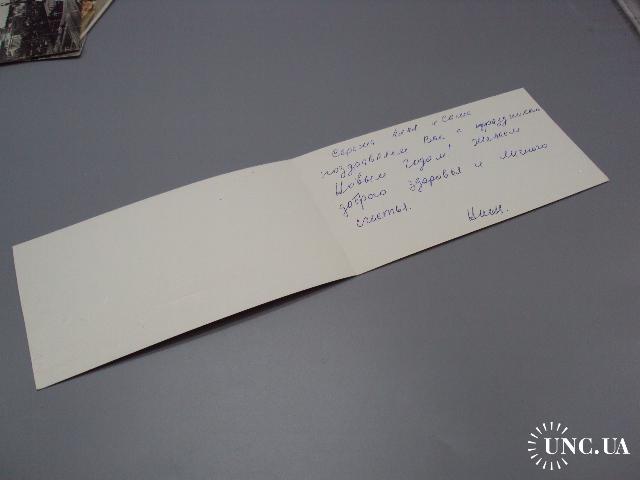 Сережа Алла и Саша
поздравляем Вас с праздником
Новым годом! Желаем
доброго здоровья и личного
счастья.
UNC.UA